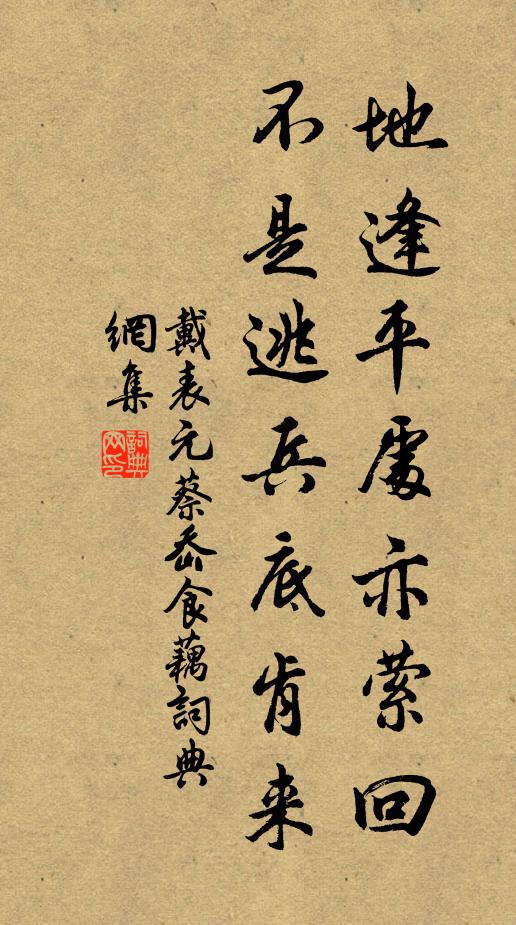 地逢平處亦縈回
不是逃兵底肯来
戴表元蔡岙食藕詞典
網集
詞典网印